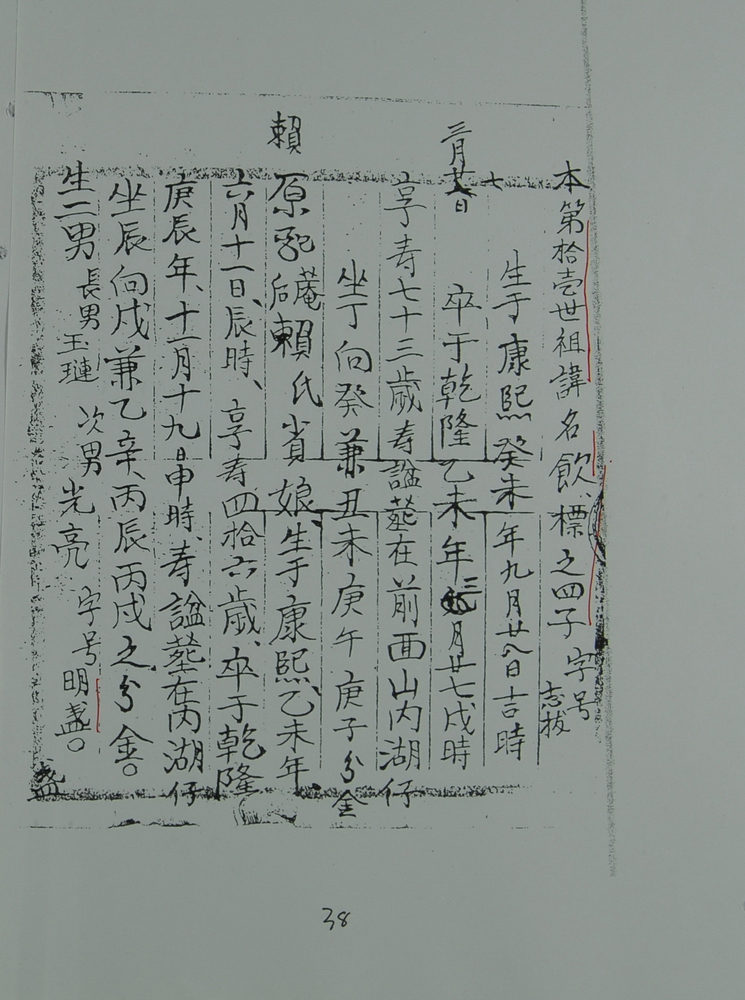 本第拾壹世祖諱名飲、標之四子 字号 志拔
生于康熙癸未年九月廿八日吉時
三月廿七日
卒于乾隆乙未年三月廿七戌時
享寿七十三歲寿謚塟在前面山内湖仔
坐丁向癸兼丑未庚午庚子分金
賴
原配庵后賴氏省娘、生于康熙乙未年
六月十一日、辰時、享寿四拾六歲、卒于乾隆
庚辰年、十一月十九日申時、寿謚塟在内湖仔
坐辰向戌兼乙辛、丙辰丙戌之分金。
生二男 長男玉璉 次男光亮 字号明盞。
盞
38